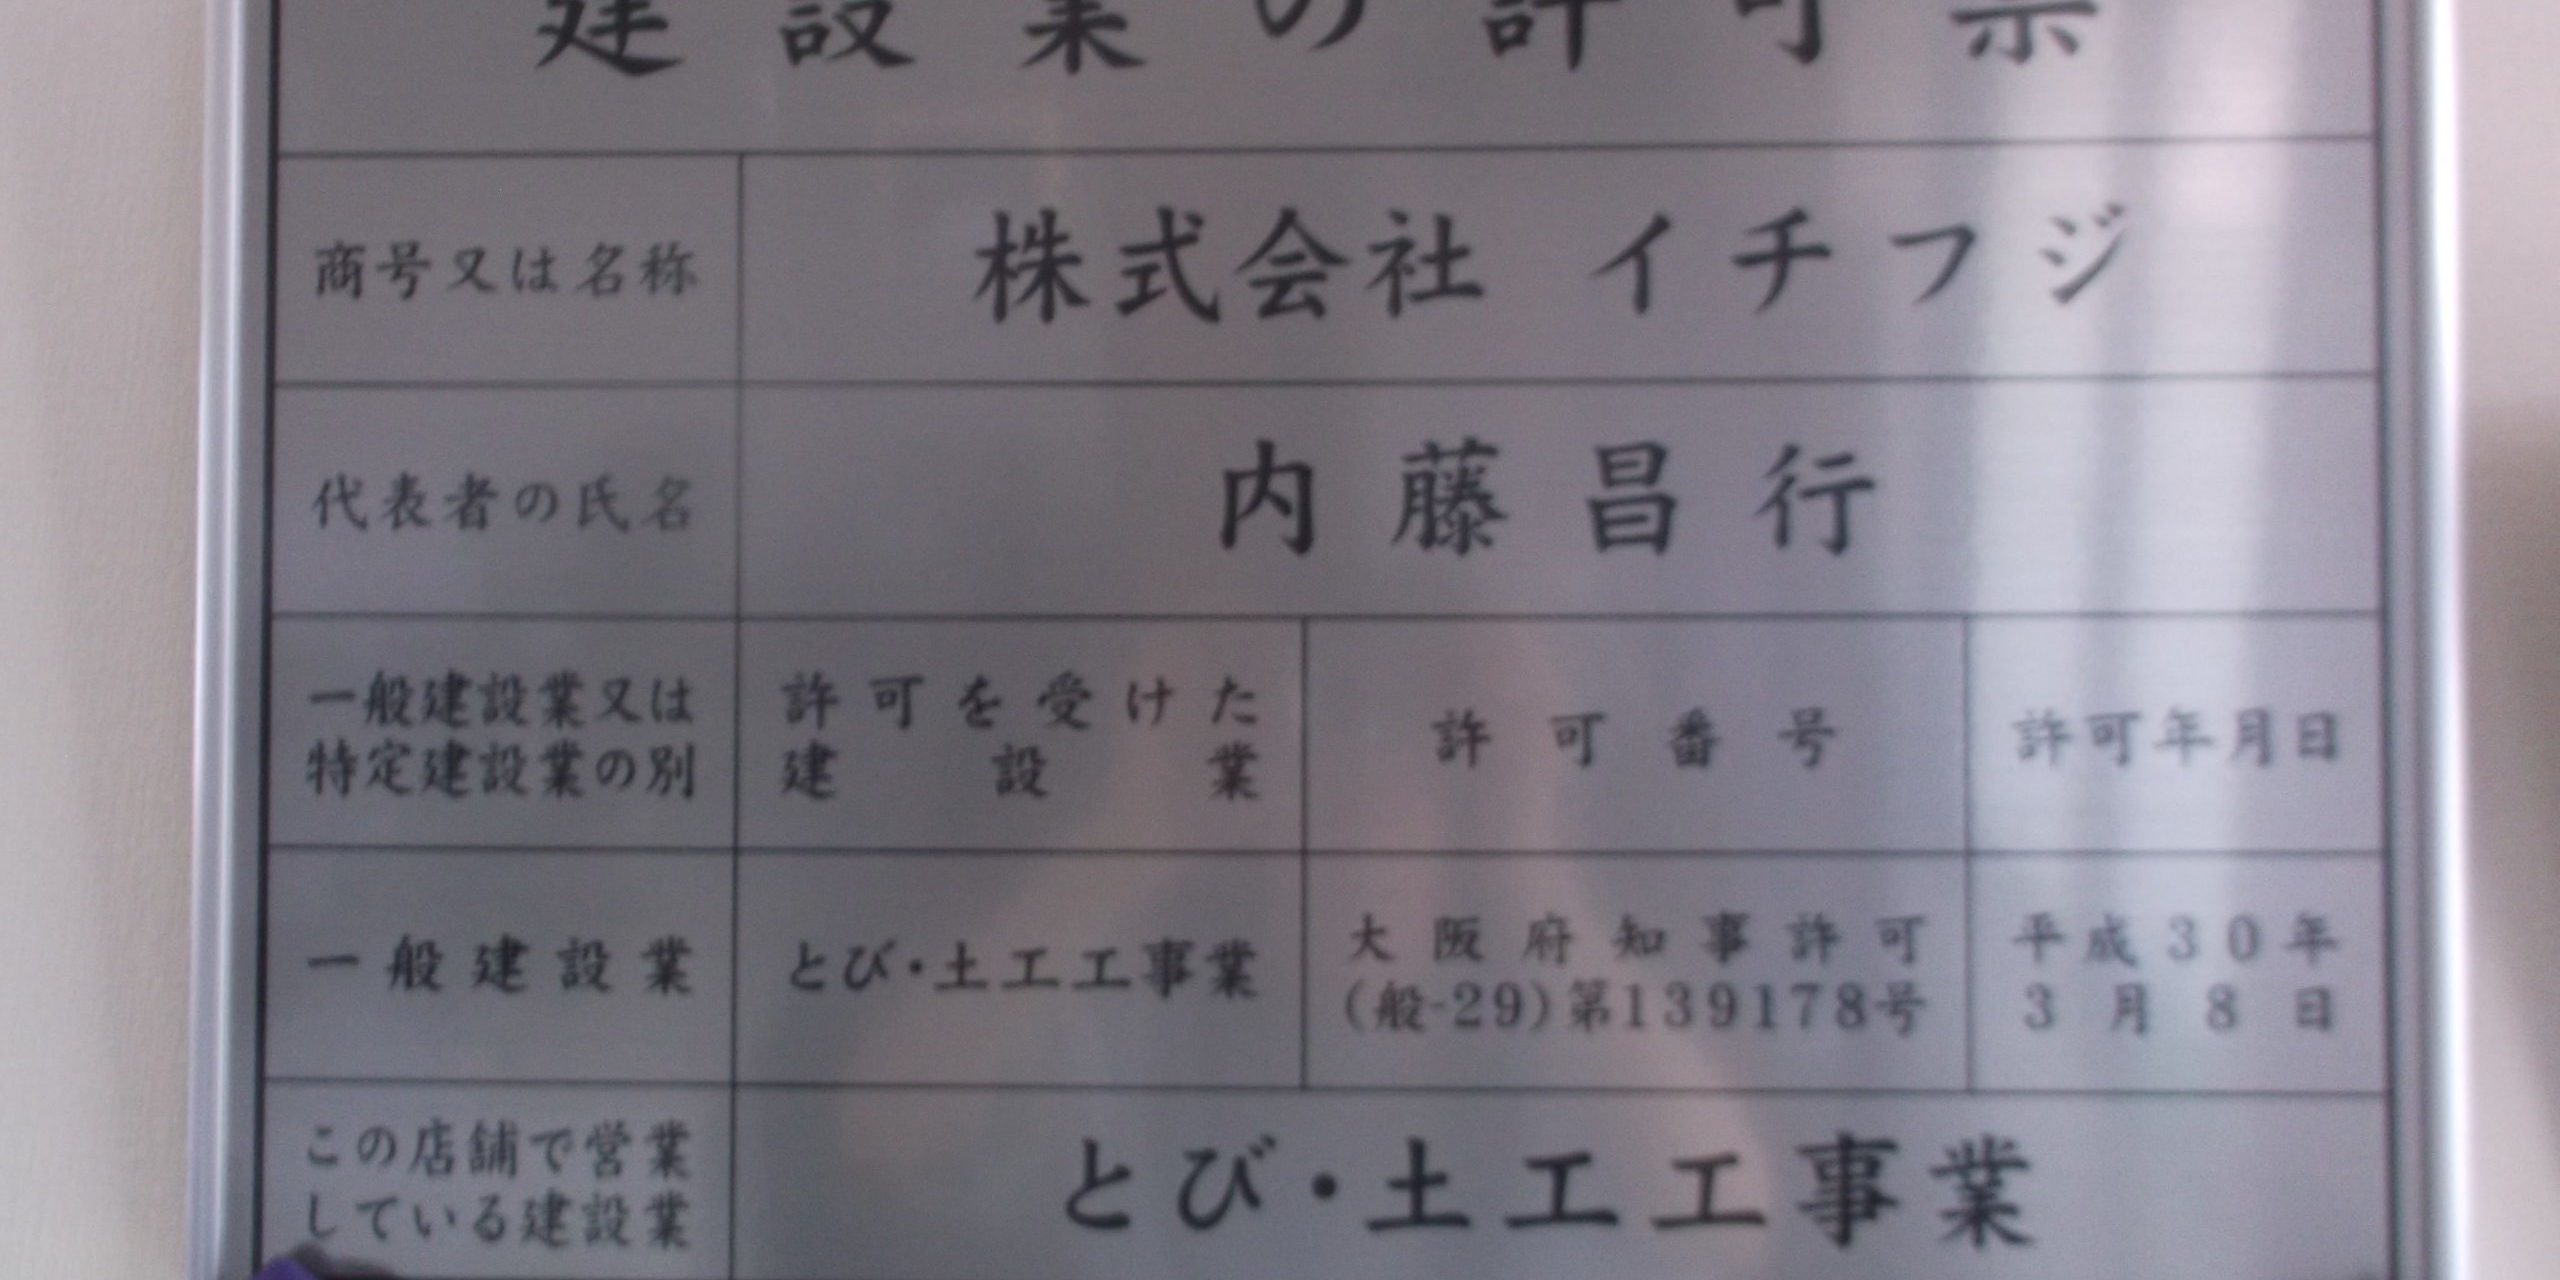 建設業の許可票
商号又は名称
株式会社 イチフジ
代表者の氏名
内藤昌行
一般建設業又は
特定建設業の別
許可を受けた
建設業
許可番号
許可年月日
一般建設業
とび・土工工事業
大阪府知事許可
(般-29)第139178号
平成30年
3月8日
この店舗で営業
している建設業
とび・土工工事業